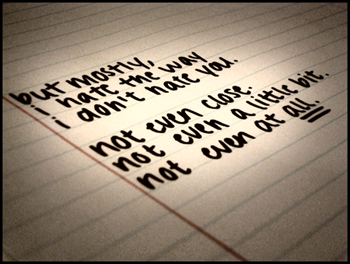 but mostly,
i hate the way
i don't hate you.
not even close.
not even a little bit.
not even at all.